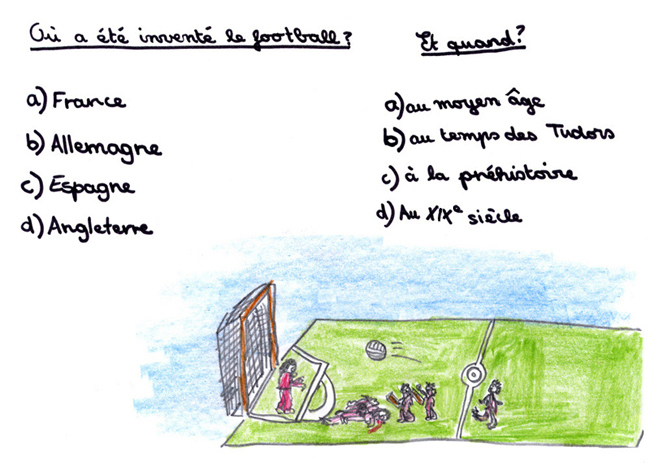 Où a été inventé le football?
a) France
b) Allemagne
c) Espagne
d) Angleterre
Et quand?
a) au moyen âge
b) au temps des Tudors
c) à la préhistoire
d) Au XIXe siècle